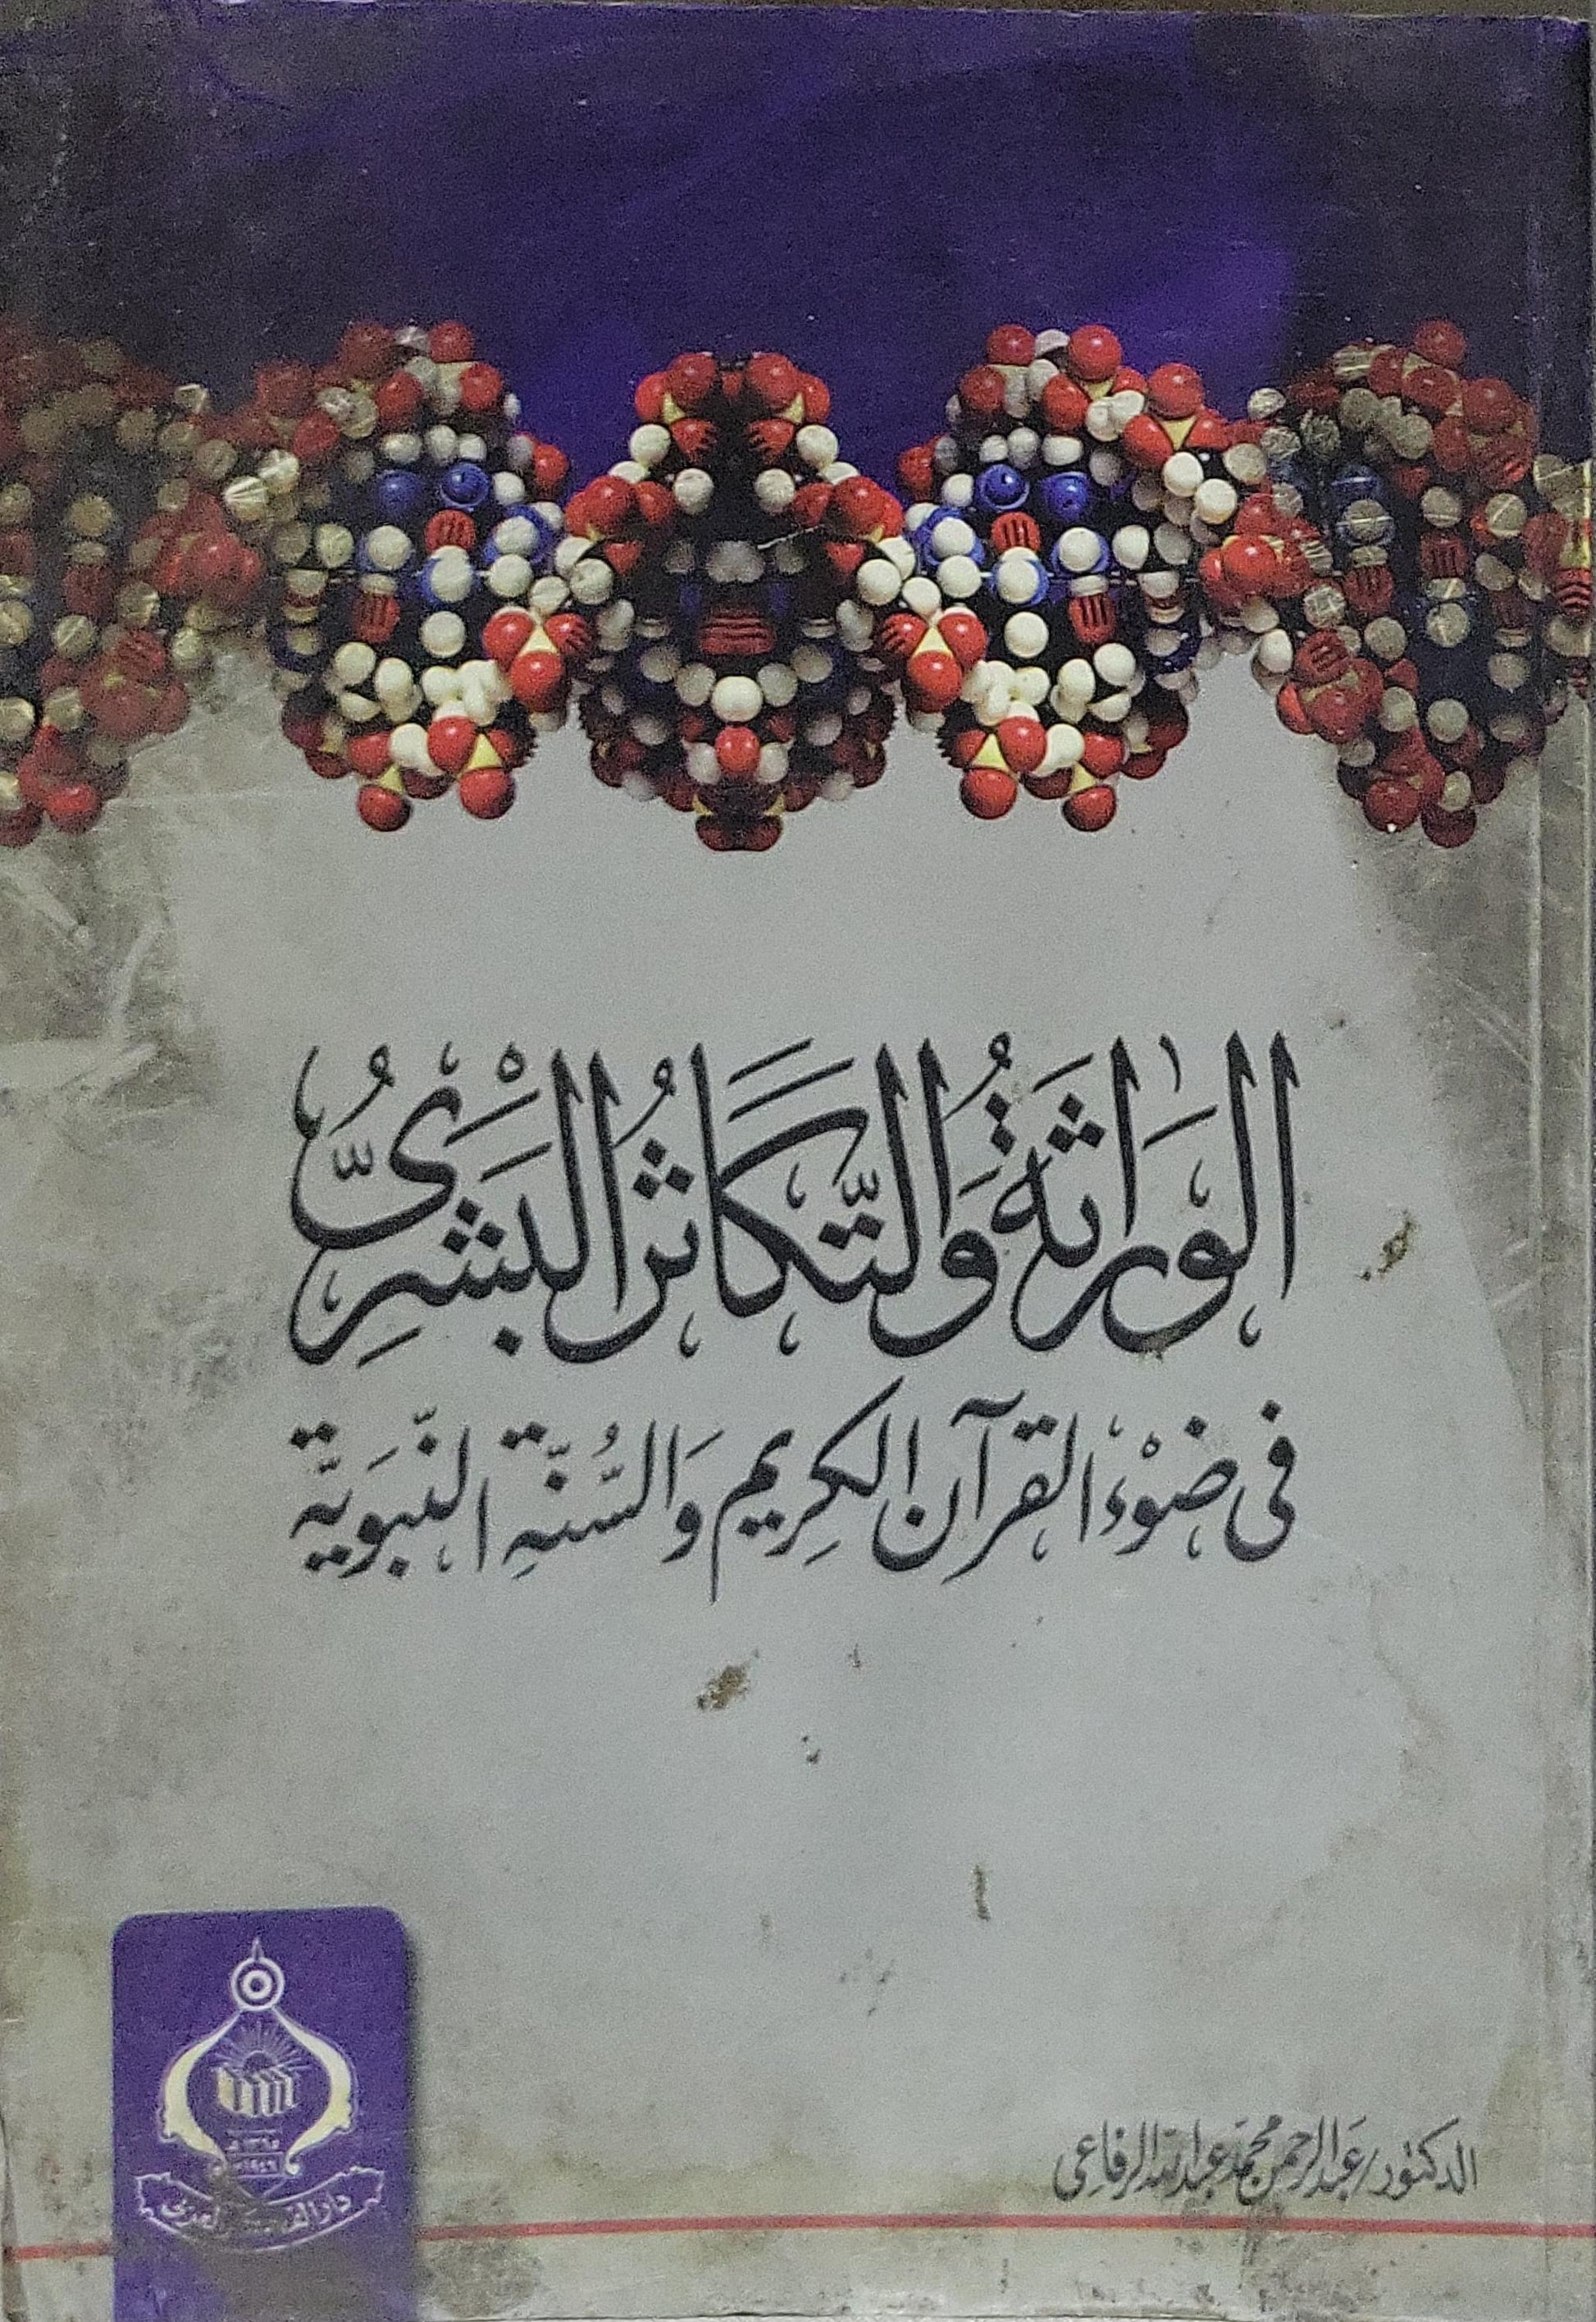 الوَرَاثَةُ وَالتَّكَاثُرُ البَشَرِيُّ
فى ضَوْءِ القرآن الكِريم وَالسُّنَّةِ النَّبَوَيَّة
الدكتور/عَبدالرحمن محمَّد عبدالله الرفاعى
١٣٦٥هـ
١٩٤٦م
دار الفكر العربى